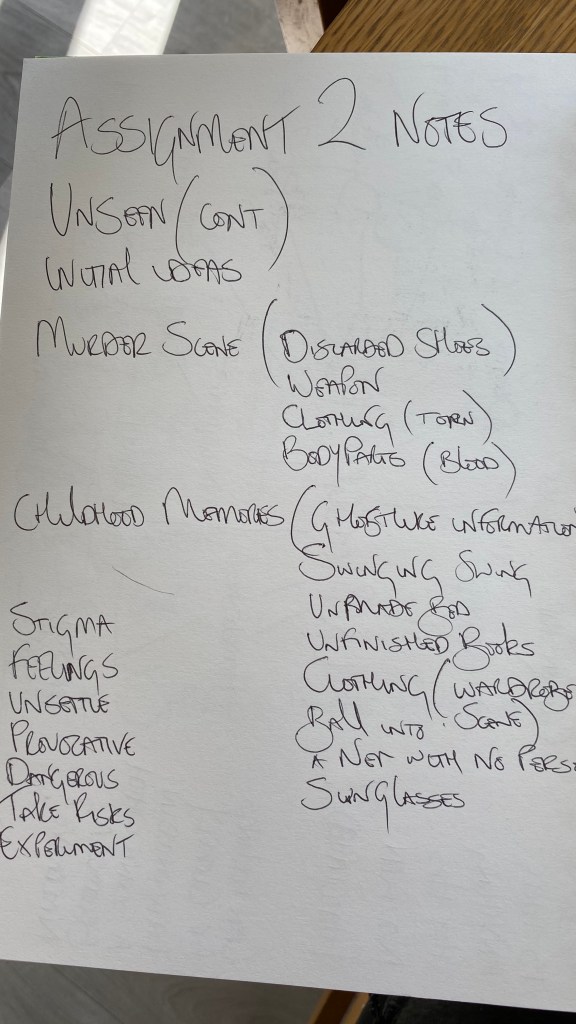 ASSIGNMENT 2 NOTES
UNSEEN (CONT)
INITIAL IDEAS
MURDER SCENE (DISCARDED SHOES)
WEAPON
CLOTHING (TORN)
BODY PARTS (BLOOD)
CHILDHOOD MEMORIES (GHOSTLIKE INFORMATION
SWINGING SWING
UNMADE BED
UNFINISHED BOOKS
CLOTHING (WARDROBE
BALL INTO SCENE)
A NET WITH NO PERS
SUNGLASSES
STIGMA
FEELINGS
UNSETTLE
PROVOCATIVE
DANGEROUS
TAKE RISKS
EXPERIMENT